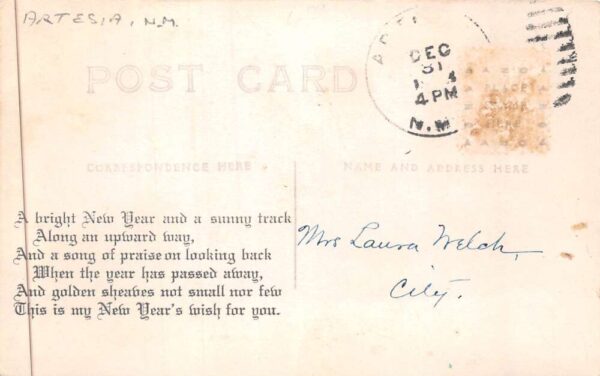 ARTESIA, N.M.
POST CARD
DEC
31
4 PM
N.M.
AZO
PLACE
STAMP
HERE
CORRESPONDENCE HERE
NAME AND ADDRESS HERE
A bright New Year and a sunny track
Along an upward way,
And a song of praise on looking back
When the year has passed away,
And golden sheaves not small nor few
This is my New Year's wish for you.
Mrs Laura Welch,
City.